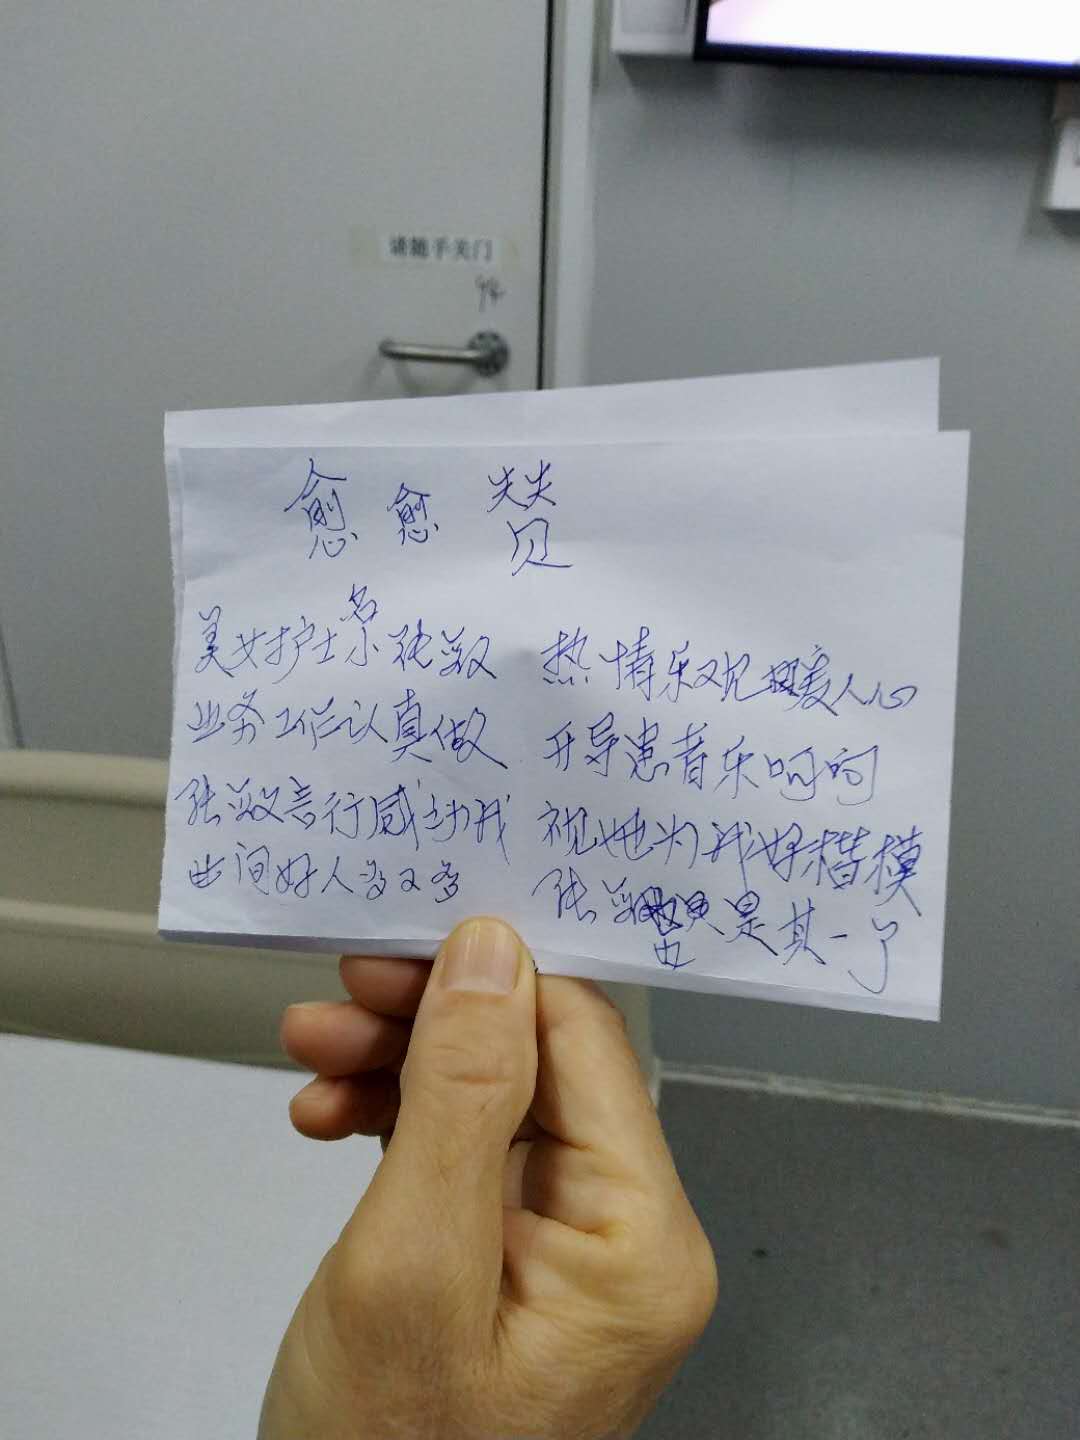 请随手关门
愈愈赞
美女护士名小张蔹 热情乐观暖人心
业务工作认真做 开导患者乐呵呵
张蔹言行感动我 视她为我好楷模
世间好人多又多 张蔹只是其一了